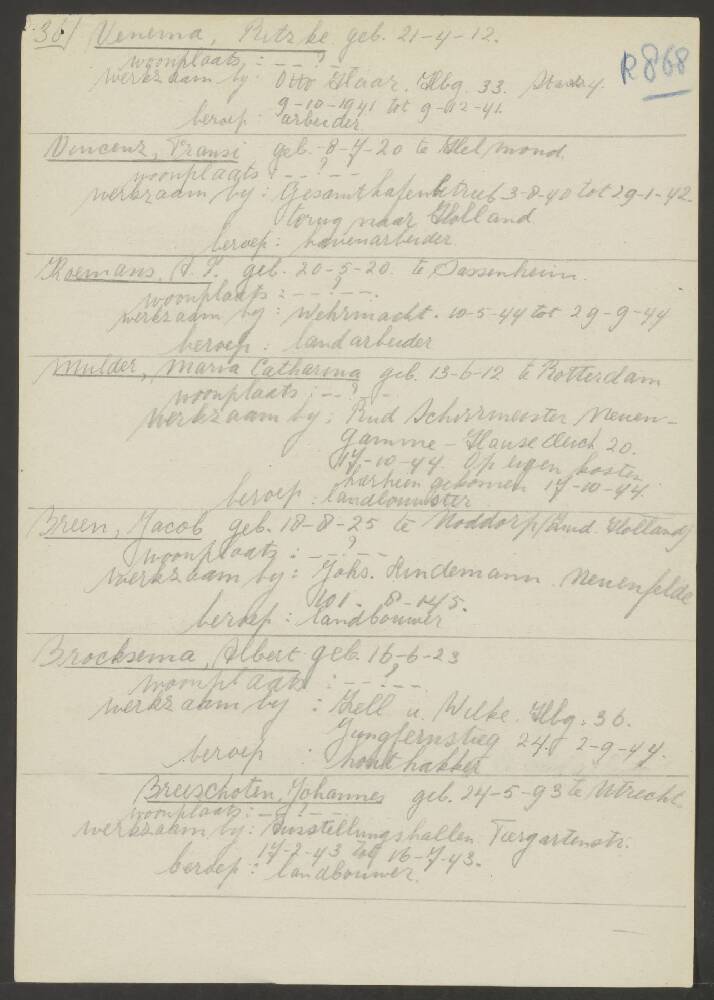 36/ Venema, Ritzke geb. 21-4-12.
R868
woonplaats : - - ? - -
werkzaam by : Otto Haar. Hbg. 33.
9-10-1941 tot 9-12-41.
beroep : arbeider
Vincenz, Fransi geb. 8-7-20 te Helmond.
woonplaats : - - ? - -
werkzaam by : Gesamthafenbetrieb 3-8-40 tot 29-1-42.
terug naar Holland
beroep : havenarbeider.
Roemans, A. F. geb. 20-5-20. te Sassenheim.
woonplaats : - - ? - -.
werkzaam by : Wehrmacht. 10-5-44 tot 29-9-44
beroep : landarbeider
Mulder, Maria Catharina geb. 13-6-12 te Rotterdam
woonplaats : - - ? -
werkzaam by : Rud Schirrmeister Neuen-
gamme - Hausedeich 20.
17-10-44. Op eigen kosten
hierheen gekomen 17-10-44.
beroep : landbouwster
Breen, Jacob geb. 18-8-25 te Hoddorp (Zuid. Holland)
woonplaats : - - ? - -
werkzaam by : Johs. Lindemann. Neuenfelde
101. 8-145.
beroep : landbouwer
Brocksema, Albert geb. 16-6-23
woonplaats : - - ? - -
werkzaam by : Zell u. Wilke. Hbg. 36.
Jungfernstieg 24. 2-9-44.
beroep : houthakker
Breeschoten, Johannes geb. 24-5-93 te Utrecht.
woonplaats : - - ? - -
werkzaam by : Ausstellungshallen Tiergartenstr.
17-2-43 tot 16-7-43.
beroep : landbouwer.